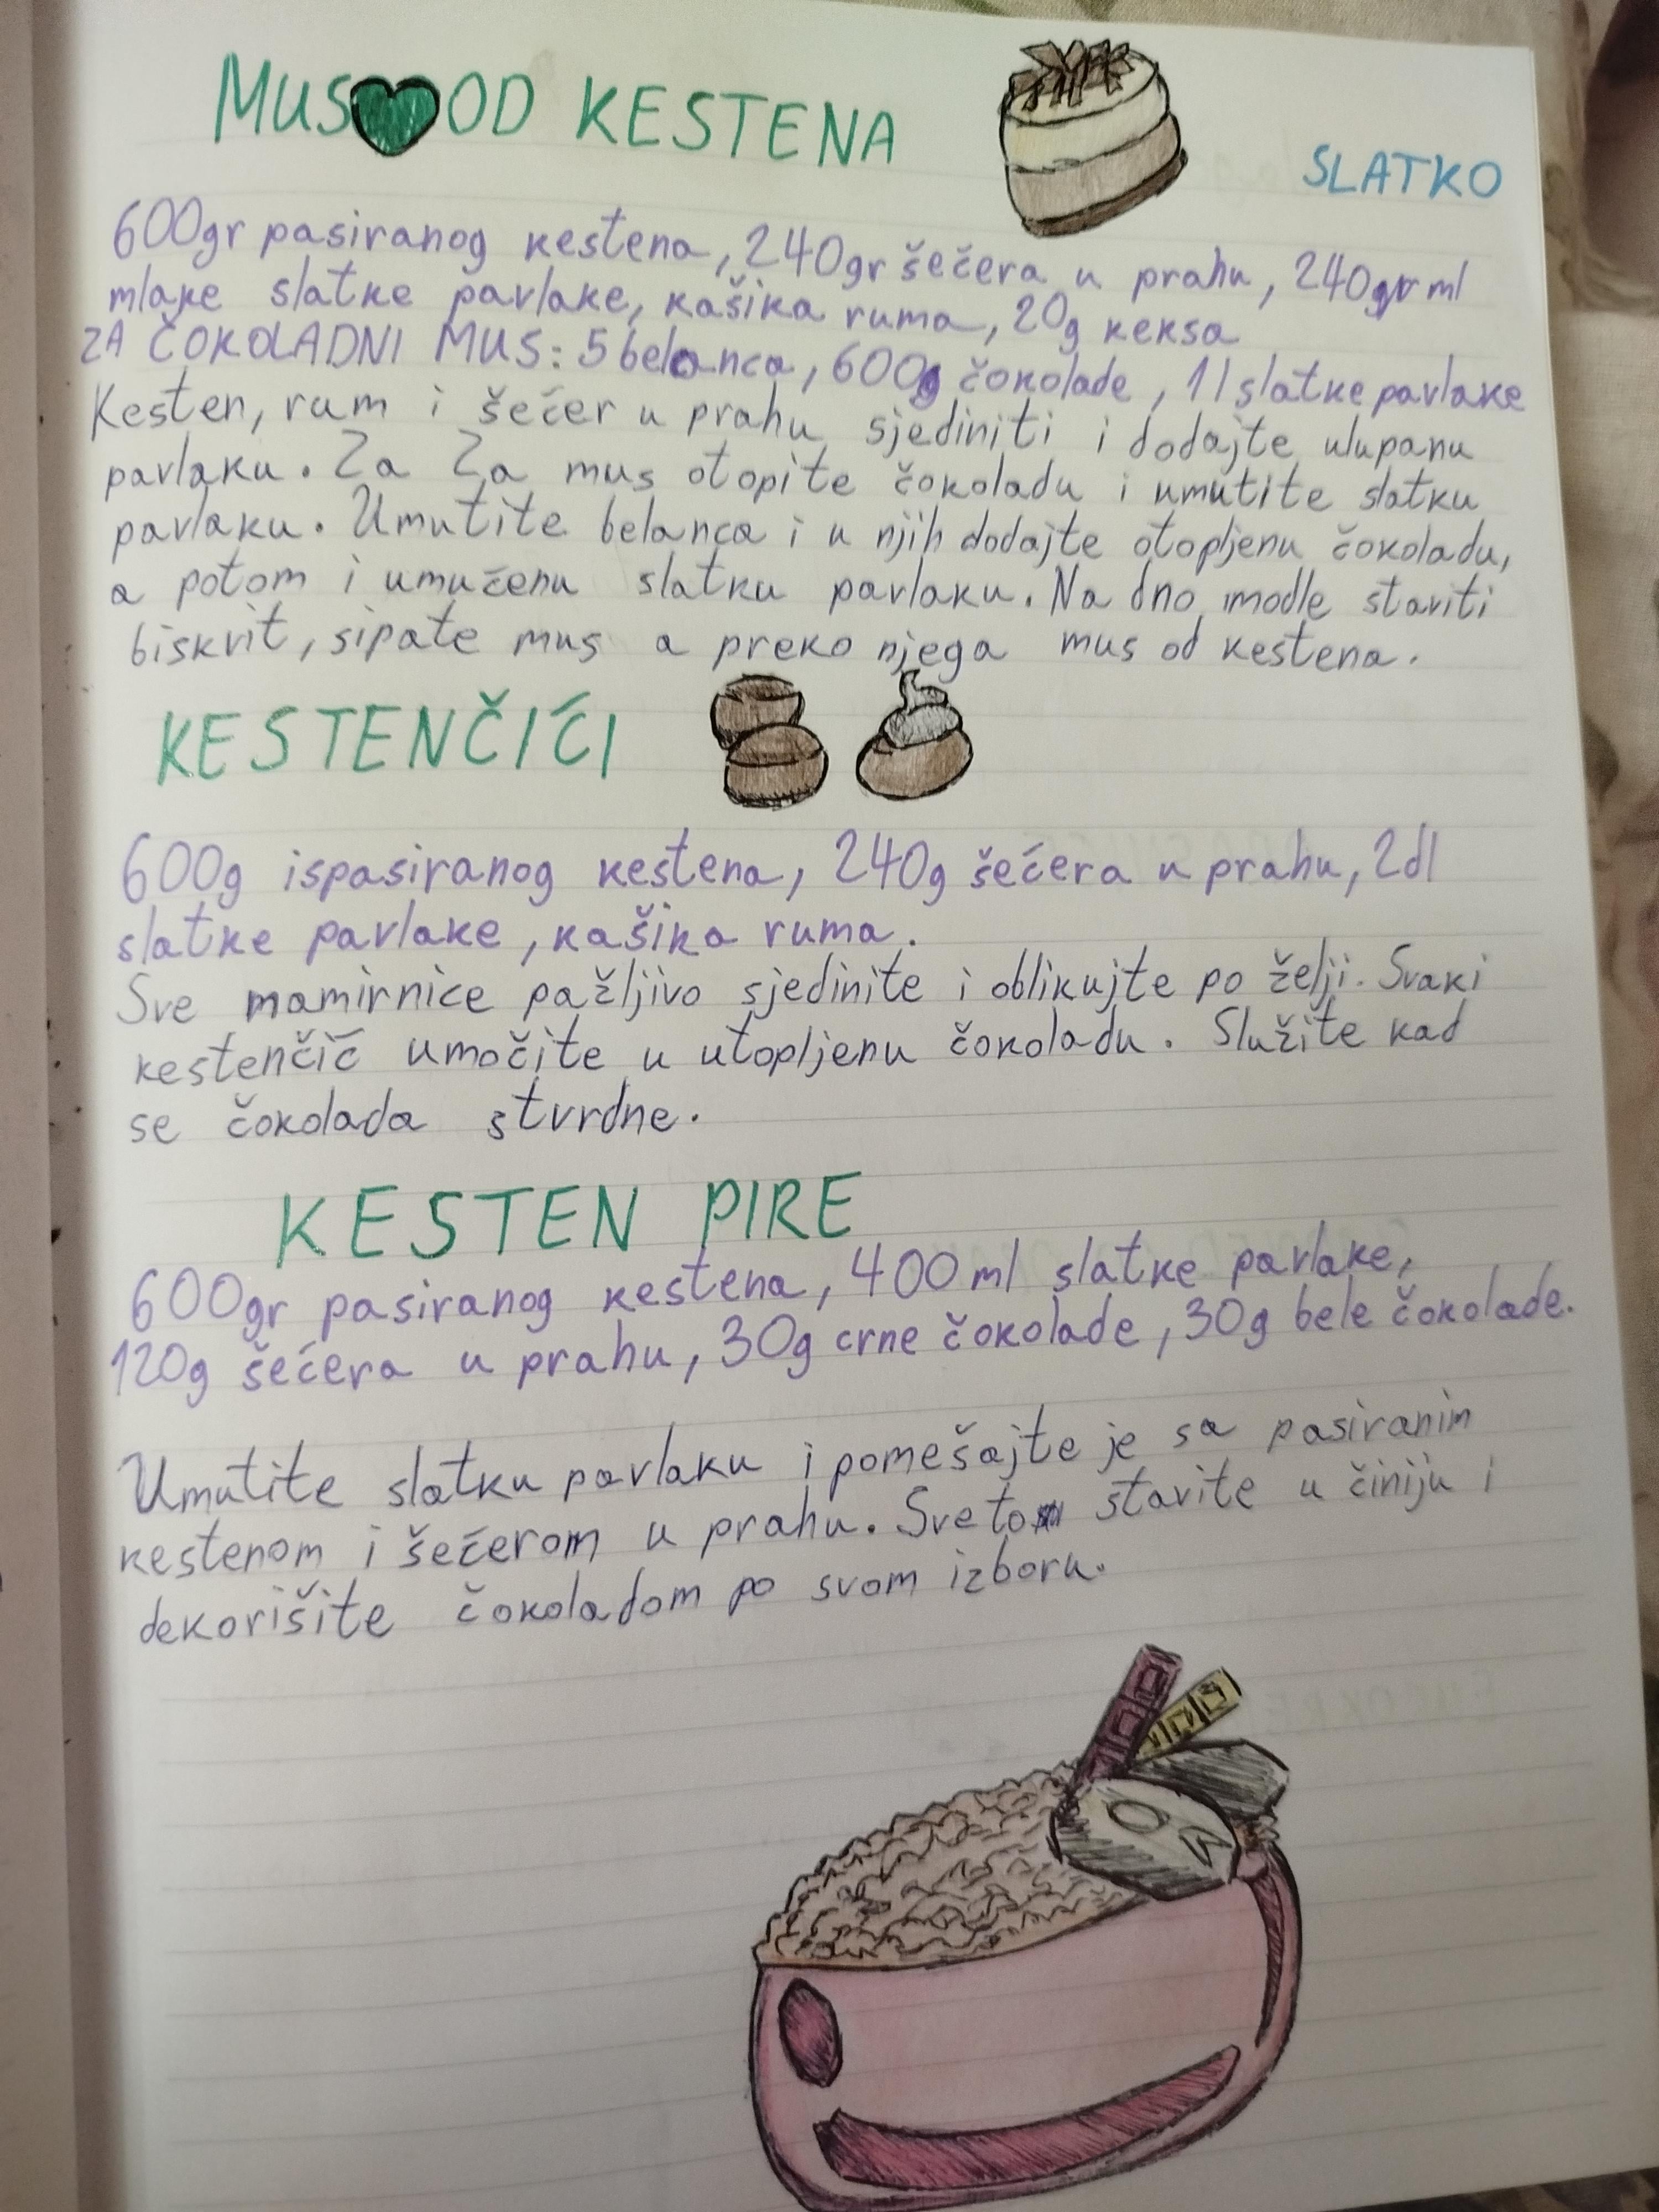 MUS OD KESTENA
SLATKO
600gr pasiranog kestena, 240gr šečera u prahu, 240 ml
mlake slatke pavlake, kašika ruma, 20g keksa
ZA ČOKOLADNI MUS: 5 belanca, 600g čokolade, 1l slatke pavlake
Kesten, rum i šećer u prahu sjediniti i dodajte ulupanu
pavlaku. Za Za mus otopite čokoladu i umutite slatku
pavlaku. Umutite belanca i u njih dodajte otopljenu čokoladu,
a potom i umućenu slatku pavlaku. Na dno modle staviti
biskvit, sipate mus a preko njega mus od kestena.
KESTENČIĆI
600g ispasiranog kestena, 240g šećera u prahu, 2dl
slatke pavlake, kašika ruma.
Sve mamirnice pažljivo sjedinite i oblikujte po želji. Svaki
kestenčić umočite u utopljenu čokoladu. Služite kad
se čokolada stvrdne.
KESTEN PIRE
600gr pasiranog kestena, 400 ml slatke pavlake,
120g šećera u prahu, 30g crne čokolade, 30g bele čokolade.
Umutite slatku pavlaku i pomešajte je sa pasiranim
kestenom i šećerom u prahu. Sve to stavite u činiju i
dekorišite čokoladom po svom izboru.